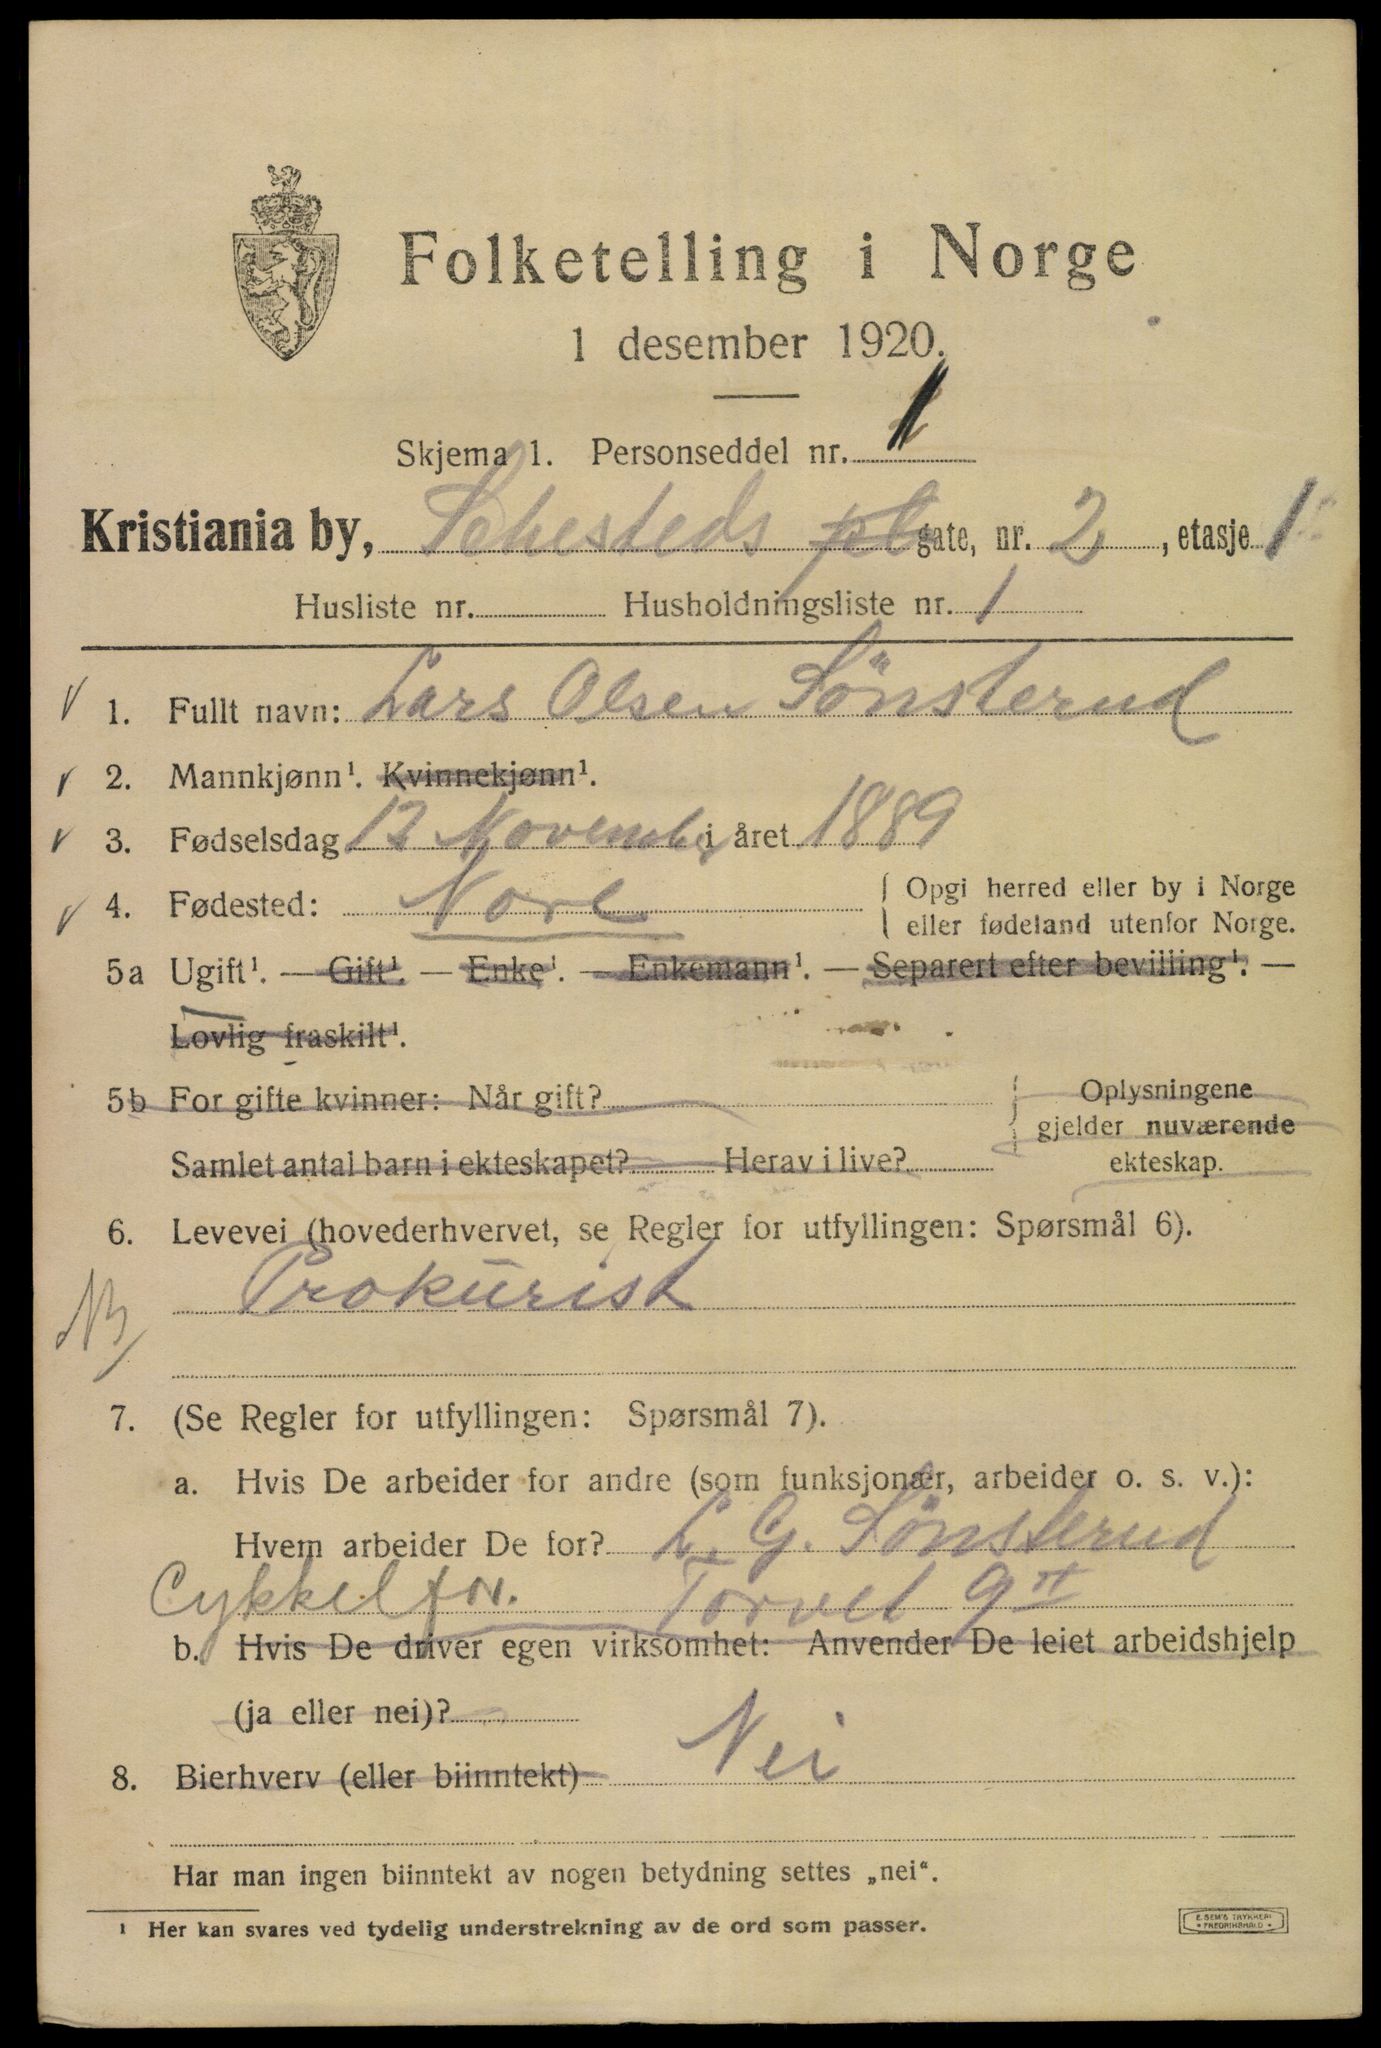 Folketelling i Norge
1 desember 1920.
Skjema 1. Personseddel nr. 1
Kristiania by, Sehesteds pl gate, nr. 2, etasje 1
Husliste nr. Husholdningsliste nr. 1
1. Fullt navn: Lars Olsen Sönsterud
2. Mannkjønn¹. Kvinnekjønn¹.
3. Fødselsdag 12 November i året 1889
4. Fødested: Nore { Opgi herred eller by i Norge
eller fødeland utenfor Norge.
5a Ugift¹. — Gift¹. — Enke¹. — Enkemann¹. — Separert efter bevilling¹. —
Lovlig fraskilt¹.
5b For gifte kvinner: Når gift? { Oplysningene
gjelder nuværende
Samlet antal barn i ekteskapet? Herav i live? ekteskap.
6. Levevei (hovederhvervet, se Regler for utfyllingen: Spørsmål 6).
Prokurist
7. (Se Regler for utfyllingen: Spørsmål 7).
a. Hvis De arbeider for andre (som funksjonær, arbeider o. s. v.):
Hvem arbeider De for? L. G. Sönsterud
Cykkelforr. Torvet 9 II
b. Hvis De driver egen virksomhet: Anvender De leiet arbeidshjelp
(ja eller nei)?
8. Bierhverv (eller biinntekt) Nei
Har man ingen biinntekt av nogen betydning settes „nei“.
¹ Her kan svares ved tydelig understrekning av de ord som passer.
E. SEM'S TRYKKERI
FREDRIKSHALD